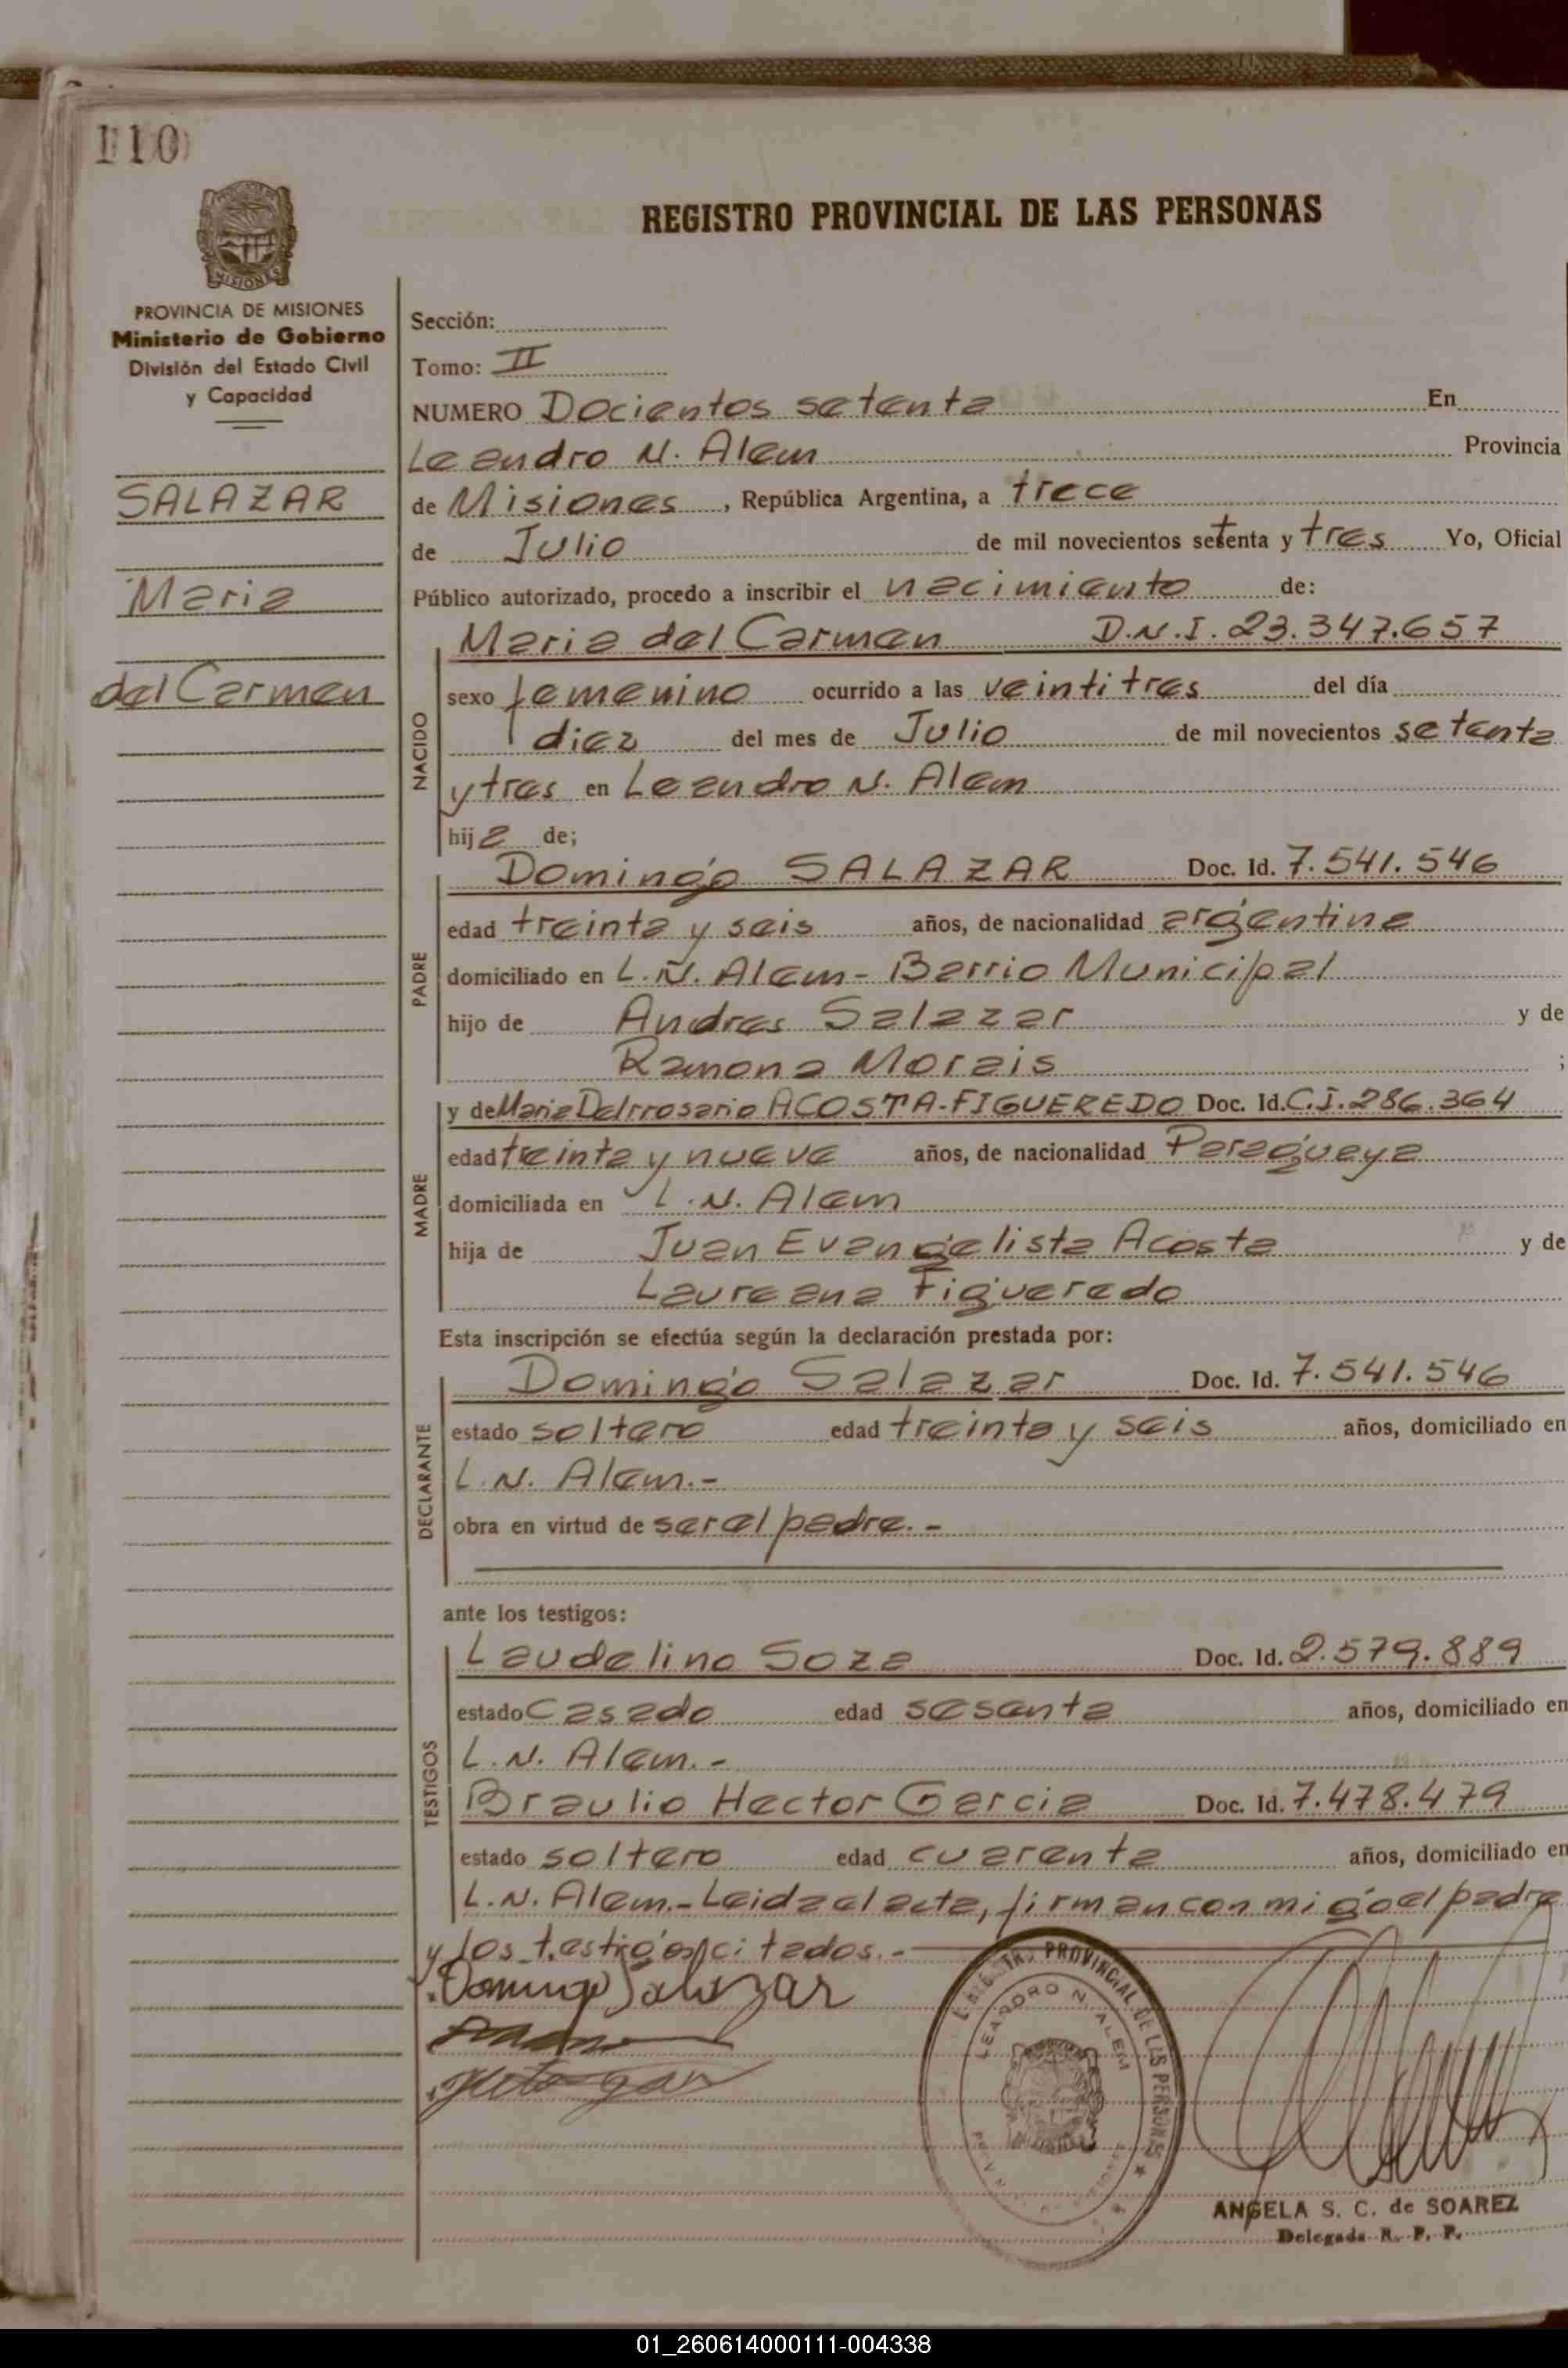 110
REGISTRO PROVINCIAL DE LAS PERSONAS
MISIONES
PROVINCIA DE MISIONES
Ministerio de Gobierno
División del Estado Civil
y Capacidad
SALAZAR
Maria
del Carmen
Sección:
Tomo: II
NUMERO Docientos setenta En
Leandro N. Alem Provincia
de Misiones, República Argentina, a trece
de Julio de mil novecientos setenta y tres Yo, Oficial
Público autorizado, procedo a inscribir el nacimiento de:
NACIDO
Maria del Carmen D.N.I. 23.347.657
sexo femenino ocurrido a las veintitres del día
diez del mes de Julio de mil novecientos setenta
y tres en Leandro N. Alem
hija de;
PADRE
Domingo SALAZAR Doc. Id. 7.541.546
edad treinta y seis años, de nacionalidad argentina
domiciliado en L.N. Alem - Barrio Municipal
hijo de Andres Salazar y de
Ramona Morais ;
MADRE
y de Maria Delrrosario ACOSTA-FIGUEREDO Doc. Id. C.I. 286.364
edad treinta y nueve años, de nacionalidad Paraguaya
domiciliada en L.N. Alem
hija de Juan Evangelista Acosta y de
Laureana Figueredo
Esta inscripción se efectúa según la declaración prestada por:
DECLARANTE
Domingo Salazar Doc. Id. 7.541.546
estado soltero edad treinta y seis años, domiciliado en
L.N. Alem.-
obra en virtud de ser el padre.-
ante los testigos:
TESTIGOS
Laudelino Soza Doc. Id. 2.579.889
estado Casado edad sesenta años, domiciliado en
L.N. Alem.-
Braulio Hector Garcia Doc. Id. 7.478.479
estado soltero edad cuarenta años, domiciliado en
L.N. Alem.- Leida el acta, firman conmigo el padre
y los testigos citados.-
Domingo Salazar
REGISTRO PROVINCIAL DE LAS PERSONAS
LEANDRO N. ALEM
ANGELA S. C. de SOAREZ
Delegada R. P. P.
01_260614000111-004338